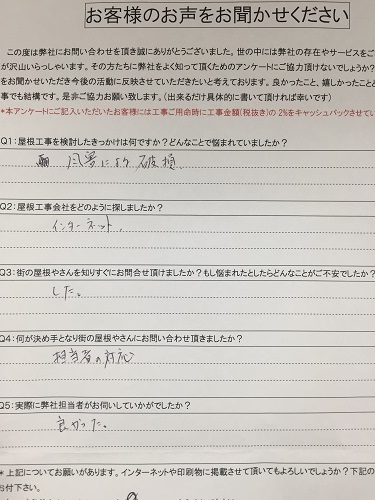 お客様のお声をお聞かせください
この度は弊社にお問い合わせを頂き誠にありがとうございました。世の中には弊社の存在やサービスをご
が沢山いらっしゃいます。その方たちに弊社をよく知って頂くためのアンケートにご協力頂けないでしょうか?
をお聞かせいただき今後の活動に反映させていただきたいと考えております。良かったこと、嬉しかったこと
事でも結構です。是非ご協力お願い致します。(出来るだけ具体的に書いて頂ければ幸いです)
*本アンケートにご記入いただいたお客様には工事ご用命時に工事金額(税抜き)の 2%をキャッシュバックさせてい
Q1:屋根工事を検討したきっかけは何ですか?どんなことで悩まれていましたか?
風害により破損
Q2:屋根工事会社をどのように探しましたか?
インターネット.
Q3:街の屋根やさんを知りすぐにお問合せ頂けましたか?もし悩まれたとしたらどんなことがご不安でしたか?
した。
Q4:何が決め手となり街の屋根やさんにお問い合わせ頂きましたか?
担当者の対応
Q5:実際に弊社担当がお伺いしていかがでしたか?
良かった。
*上記についてお願いがあります。インターネットや印刷物に掲載させて頂いてもよろしいでしょうか?下記の
お付下さい。